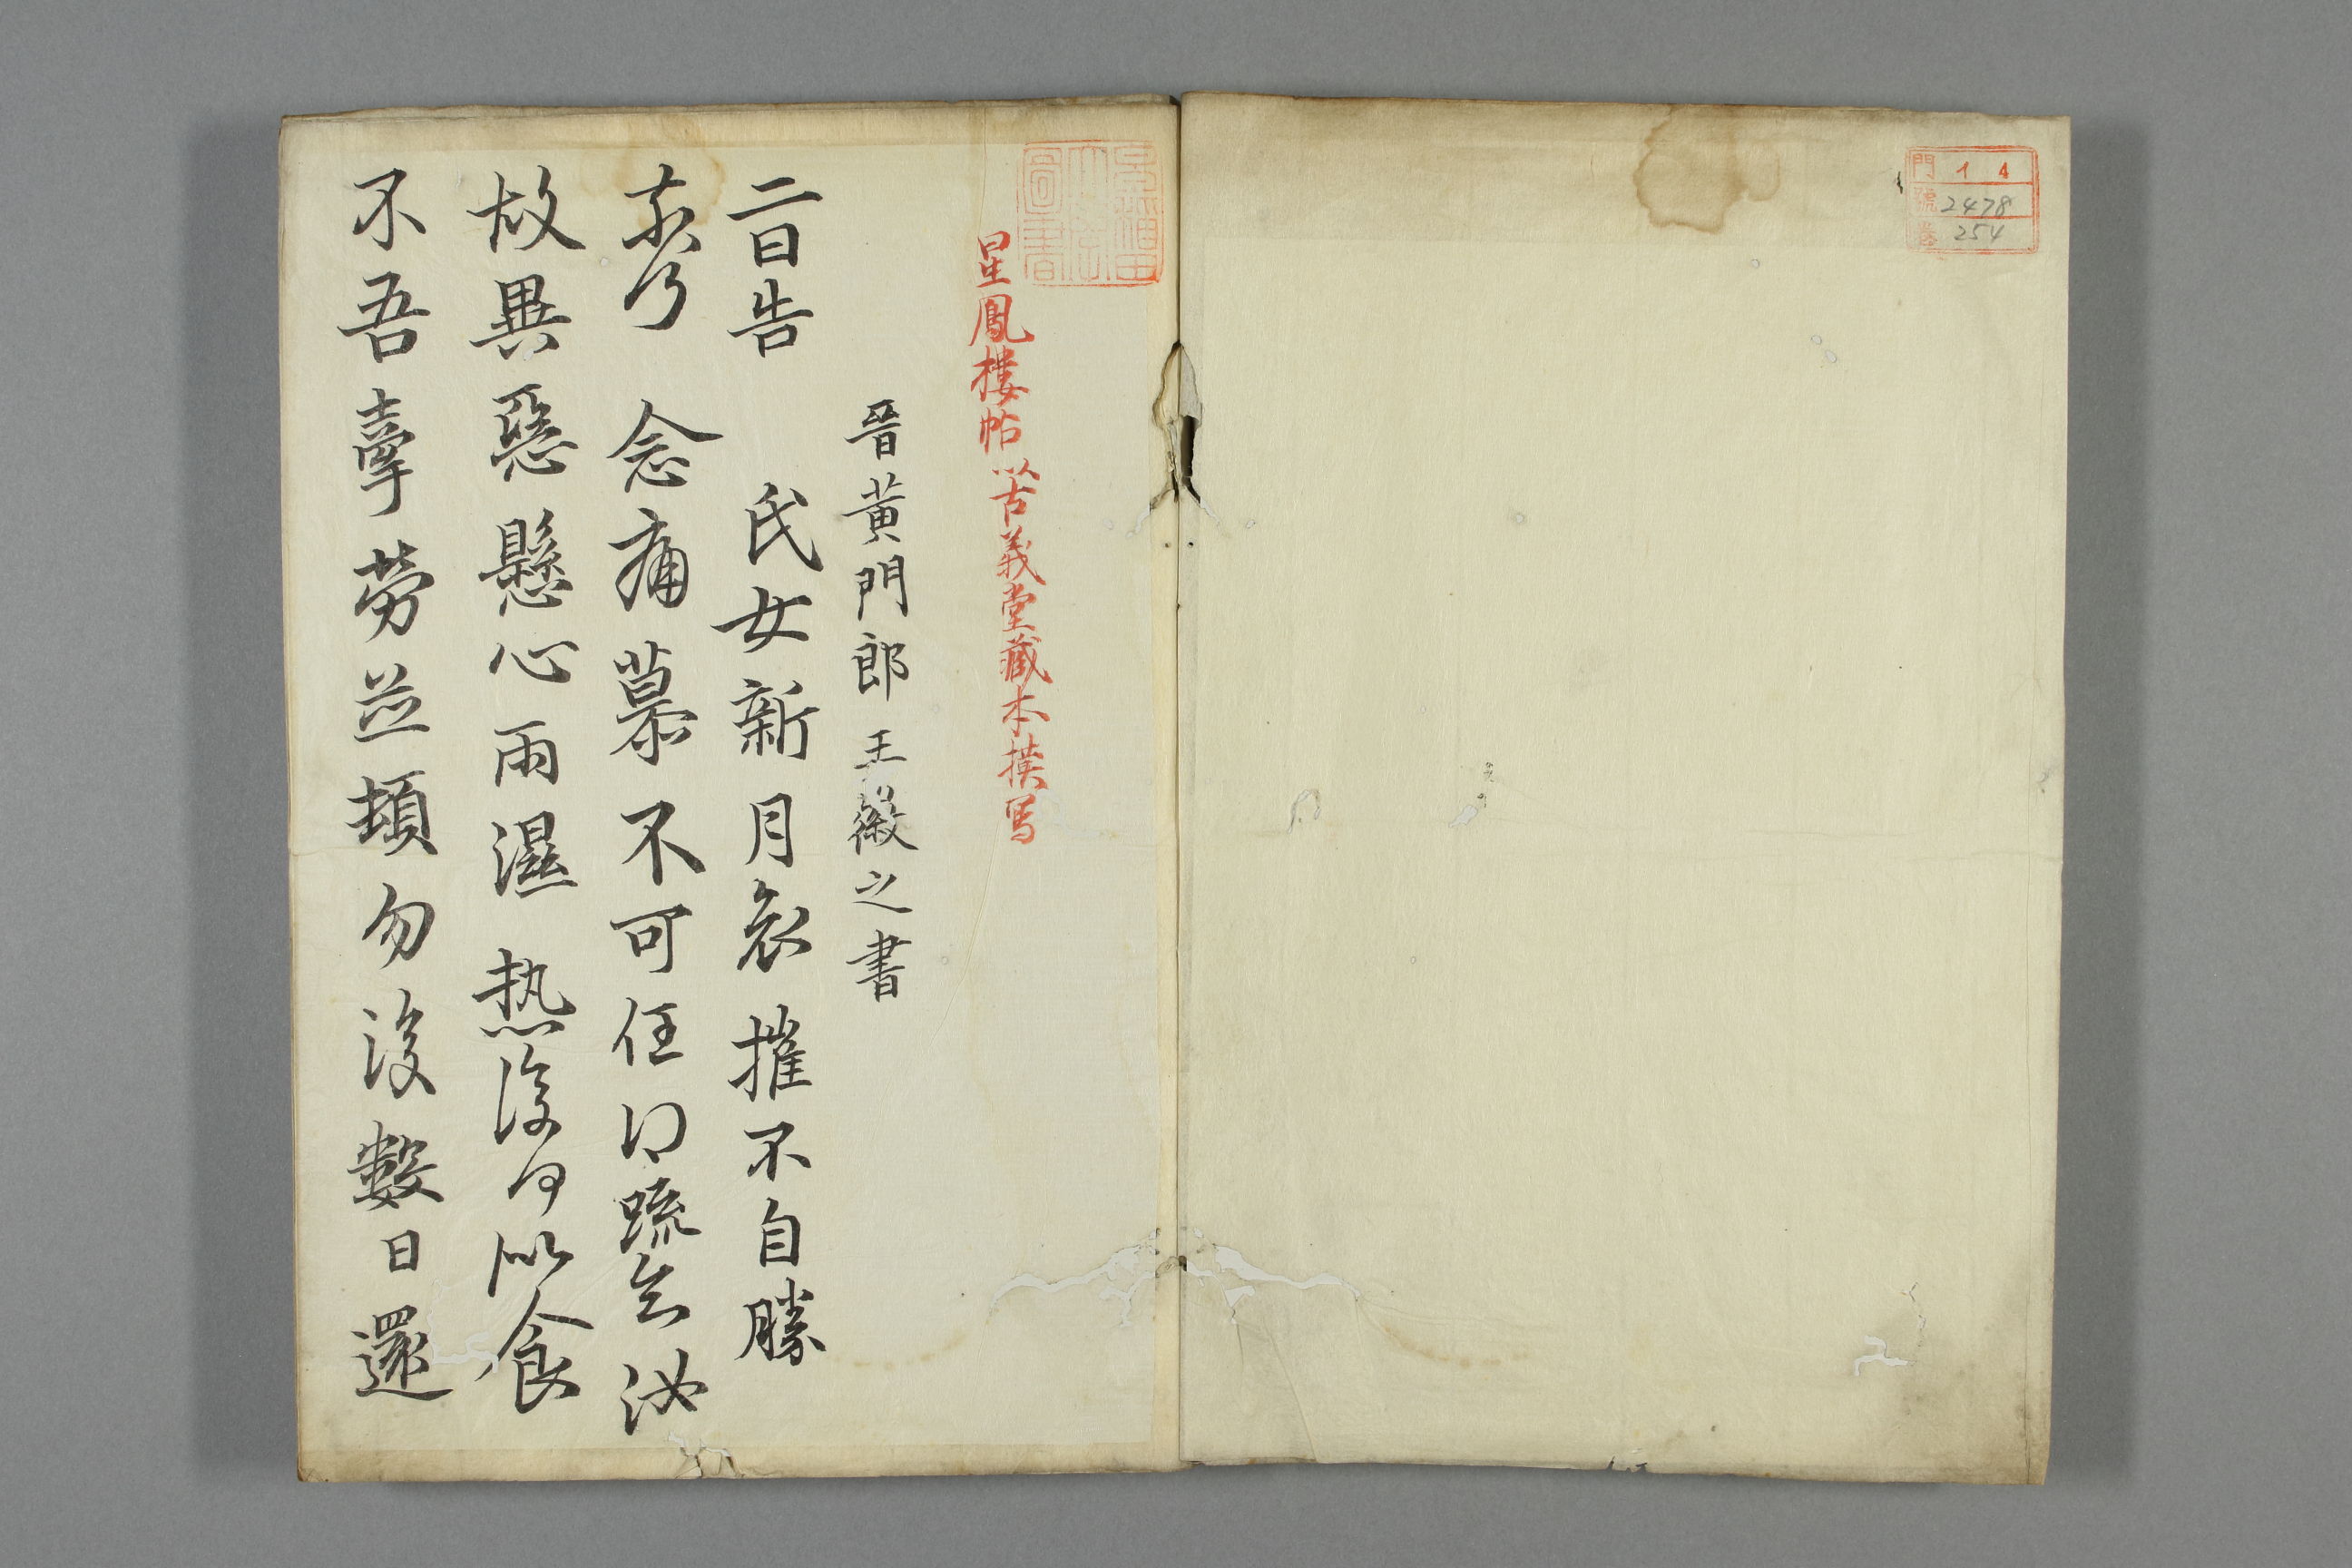 門 イ 4
號 2478
卷 254
早稲田大學圖書
星鳳樓帖以古義堂藏本摸写
晉黃門郎王徽之書
二日告 氏女新月哀摧不自勝
奈何 念痛慕不可任得疏知汝
故異惡懸心雨濕熱復何似食
不吾牽勞並頓勿復數日還